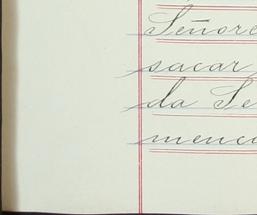 Señore
sacar
da Se
menca